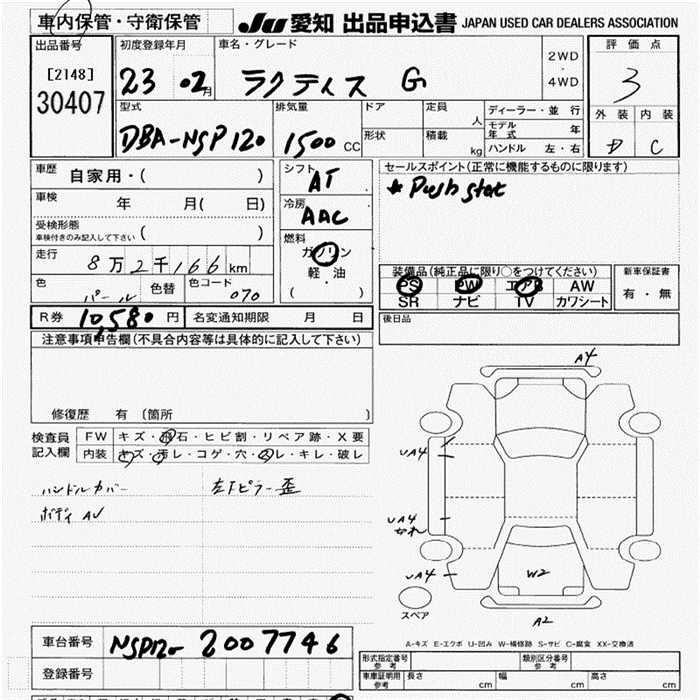 車内保管・守衛保管 JU 愛知 出品申込書 JAPAN USED CAR DEALERS ASSOCIATION
出品番号 初度登録年月 車名・グレード 2WD ・ 4WD 評価点
[2148] 30407 23 02月 ラクティス G 3
型式 排気量 ドア 定員 人 ディーラー・並行 外装 内装
DBA-NSP120 1500 CC 形状 積載 kg モデル年式 年 D C
ハンドル 左・右
車歴 自家用・( ) シフト AT セールスポイント(正常に機能するものに限ります)
車検 年 月( 日) 冷房 AAC * Push stat
受検形態 ( )
車検付きのみ記入して下さい
走行 8万2千166km 燃料 ガソリン 軽・油 ( )
装備品(純正品に限り○をつけてください) 新車保証書
色 パール 色替 色コード 070 PS PW エアB AW 有・無
SR ナビ TV カワシート
R券 10,580円 名変通知期限 月 日 後日品
注意事項申告欄(不具合内容等は具体的に記入して下さい)
修復歴 有 (箇所 )
検査員記入欄 FW キズ・飛石・ヒビ割・リペア跡・X要
内装 キズ・汚レ・コゲ・穴・スレ・キレ・破レ
ハンドルカバー 左Fピラー歪
ボディ AU
A4
UA4
UA4
UA4
W2
A2
スペア
A-キズ E-エクボ U-凹み W-補修跡 S-サビ C-腐食 XX-交換済
車台番号 NSP120-2007746
登録番号
形式指定番号 参考 類別区分番号 参考
車庫証明用 参考 長さ cm 幅 cm 高さ cm